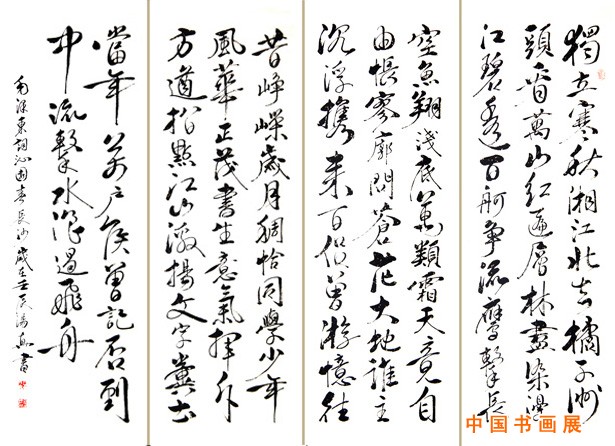 獨立寒秋湘江北去橘子洲
頭看萬山紅遍層林盡染漫
江碧透百舸爭流鷹擊長
空魚翔淺底萬類霜天竟自
由悵寥廓問蒼茫大地誰主
沉浮攜來百侶曾游憶往
昔崢嶸歲月稠恰同學少年
風華正茂書生意氣揮斥
方遒指點江山激揚文字糞土
當年万戶侯曾記否到
中流擊水浪遏飛舟
毛澤東詞沁園春長沙歲在壬辰書
中国书画展